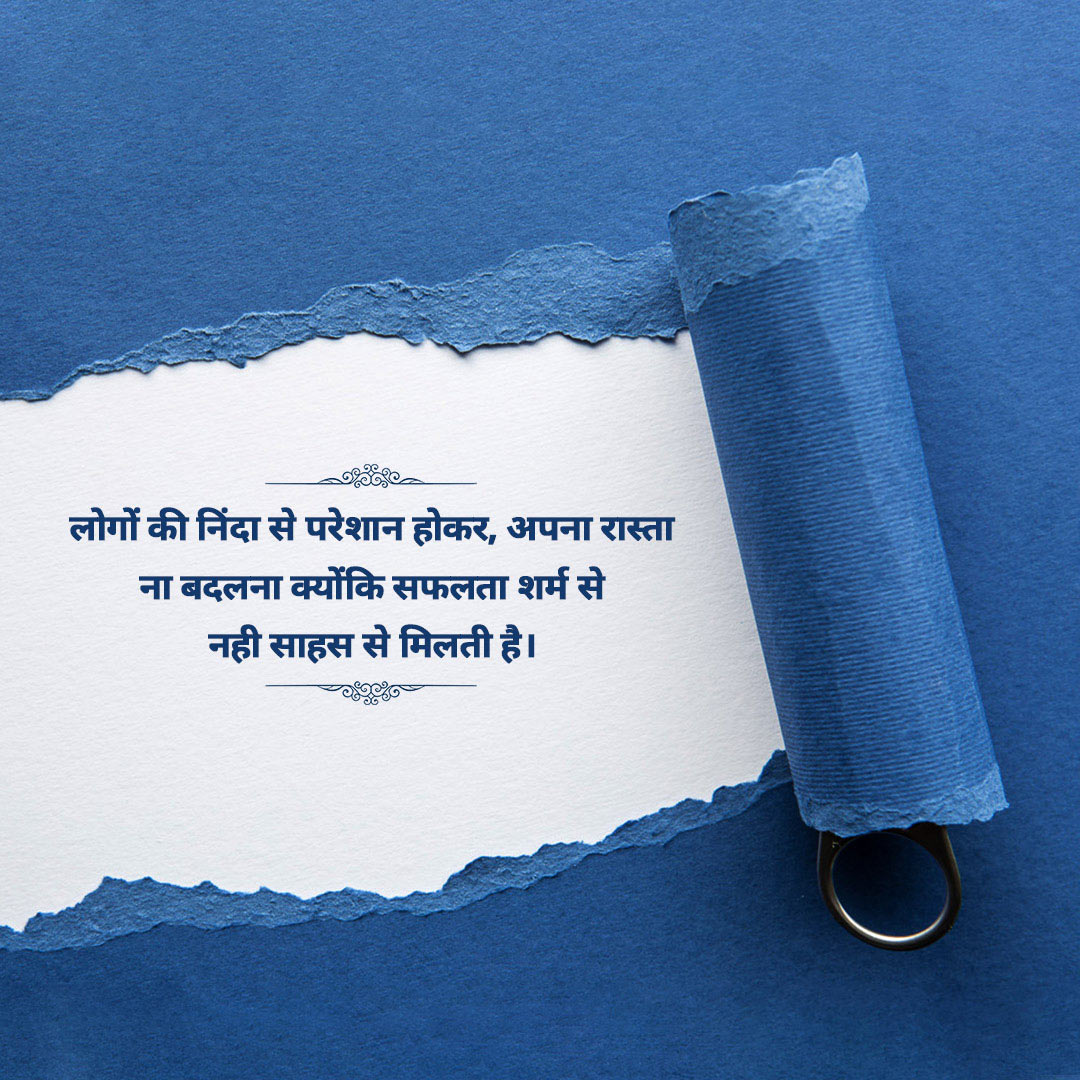 लोगों की निंदा से परेशान होकर, अपना रास्ता
ना बदलना क्योंकि सफलता शर्म से
नही साहस से मिलती है।